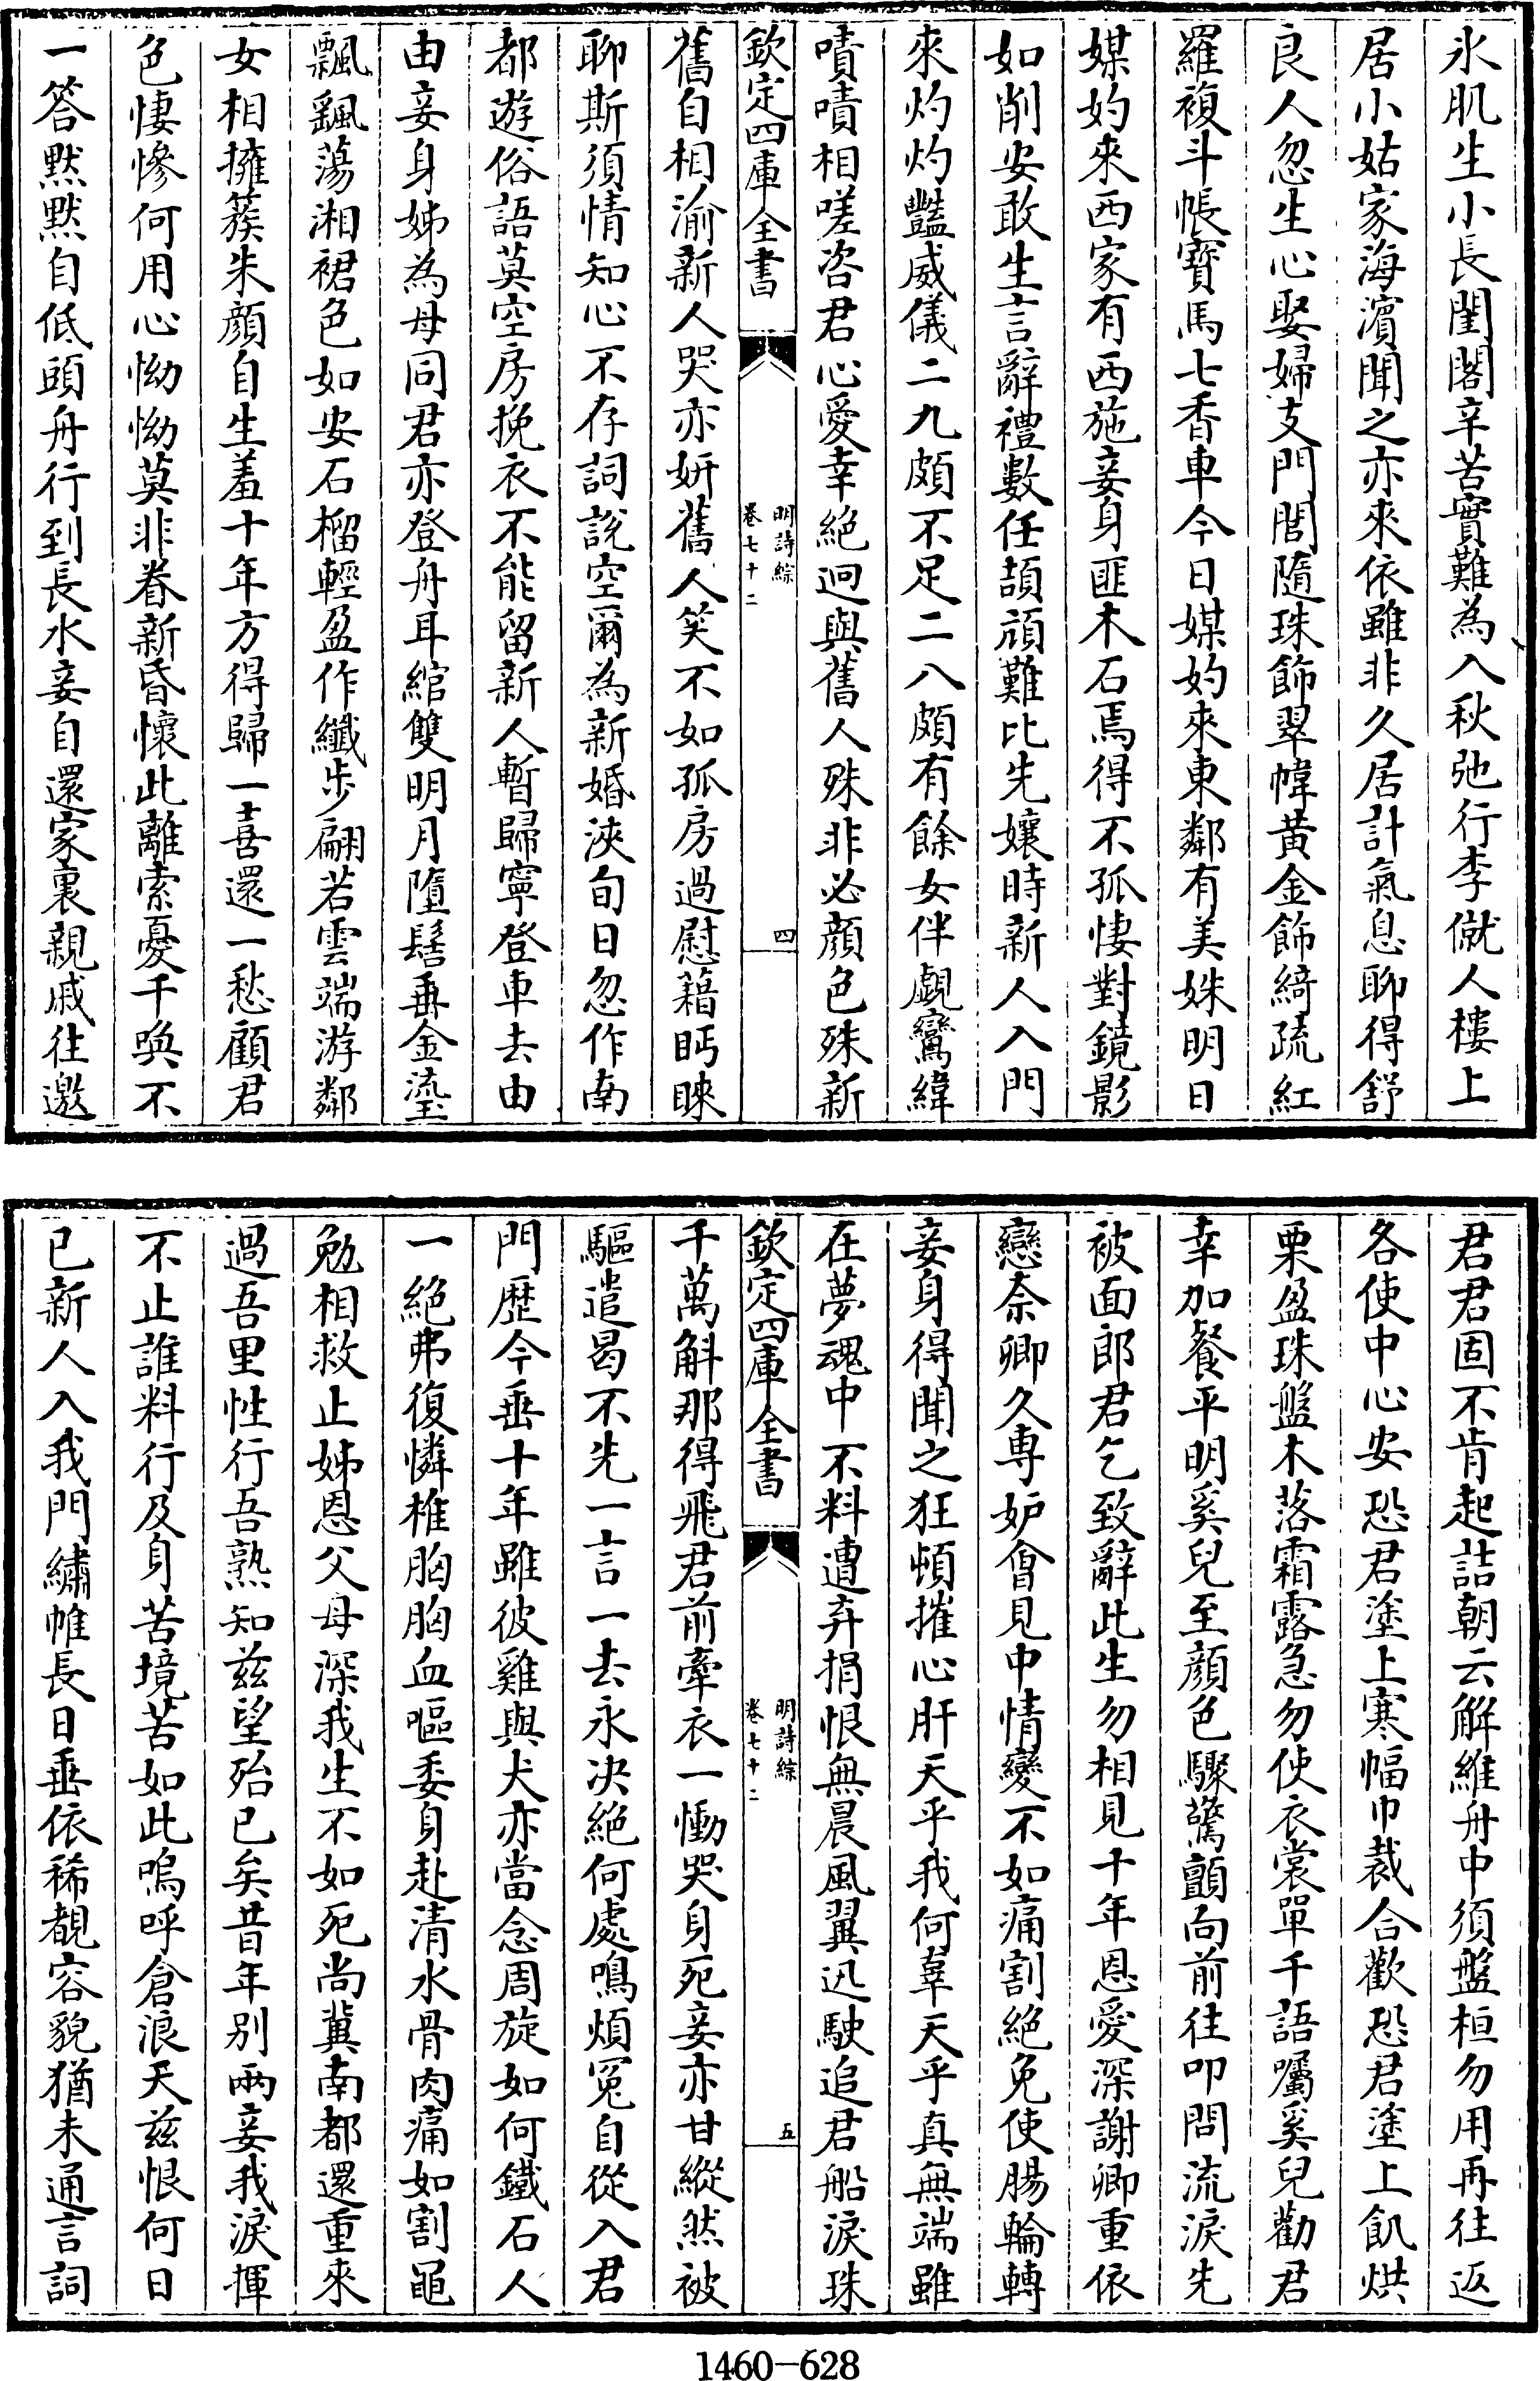 氷肌生小長閨閣辛苦實難為入秋弛行李僦人樓上
居小姑家海濱聞之亦來依雖非久居計氣息聊得舒
良人忽生心娶婦支門閭隨珠飾翠幃黃金飾綺疏紅
羅複斗帳寶馬七香車今日媒妁來東鄰有美姝明日
媒妁來西家有西施妾身匪木石焉得不孤悽對鏡影
如削安敢生言辭禮數任頡頏難比先孃時新人入門
來灼灼豔威儀二九頗不足二八頗有餘女伴覷鸞緯
嘖嘖相嗟咨君心愛幸絕迥與舊人殊非必顏色殊新
欽定四庫全書 明詩綜 卷七十二 四
舊自相渝新人哭亦妍舊人笑不如孤房過慰藉眄睞
聊斯須情知心不存詞說空爾為新婚浹旬日忽作南
都遊俗語莫空房挽衣不能留新人暫歸寧登車去由
由妾身姊為母同君亦登舟耳綰雙明月墮髻垂金瑬
飄颻蕩湘裙色如安石榴輕盈作纖步翩若雲端游鄰
女相擁簇朱顏自生羞十年方得歸一喜還一愁顧君
色悽慘何用心怮怮莫非眷新昏懷此離索憂千喚不
一答黙黙自低頭舟行到長水妾自還家裏親戚往邀
君君固不肯起詰朝云解維舟中須盤桓勿用再往返
各使中心安恐君塗上寒幅巾裁合歡恐君塗上飢烘
栗盈珠盤木落霜露急勿使衣裳單千語囑奚兒勸君
幸加餐平明奚兒至顏色驟驚顫向前往叩問流淚先
被面郎君乞致辭此生勿相見十年恩愛深謝卿重依
戀奈卿久専妒會見中情變不如痛割絕免使腸輪轉
妾身得聞之狂頓摧心肝天乎我何辜天乎真無端雖
在夢魂中不料遭弃捐恨無晨風翼迅駛追君船淚珠
欽定四庫全書 明詩綜 卷七十二 五
千萬斛那得飛君前牽衣一慟哭身死妾亦甘縱然被
驅遣曷不先一言一去永决絕何處鳴煩冤自從入君
門歷今垂十年雖彼雞與犬亦當念周旋如何鐵石人
一絕弗復憐椎胸胸血嘔委身赴清水骨肉痛如割黽
勉相救止姊恩父母深我生不如死尚冀南都還重來
過吾里性行吾熟知兹望殆已矣昔年別兩妾我淚揮
不止誰料行及身苦境苦如此嗚呼倉浪天兹恨何日
已新人入我門繡帷長日垂依稀覩容貌猶未通言詞
1460-628